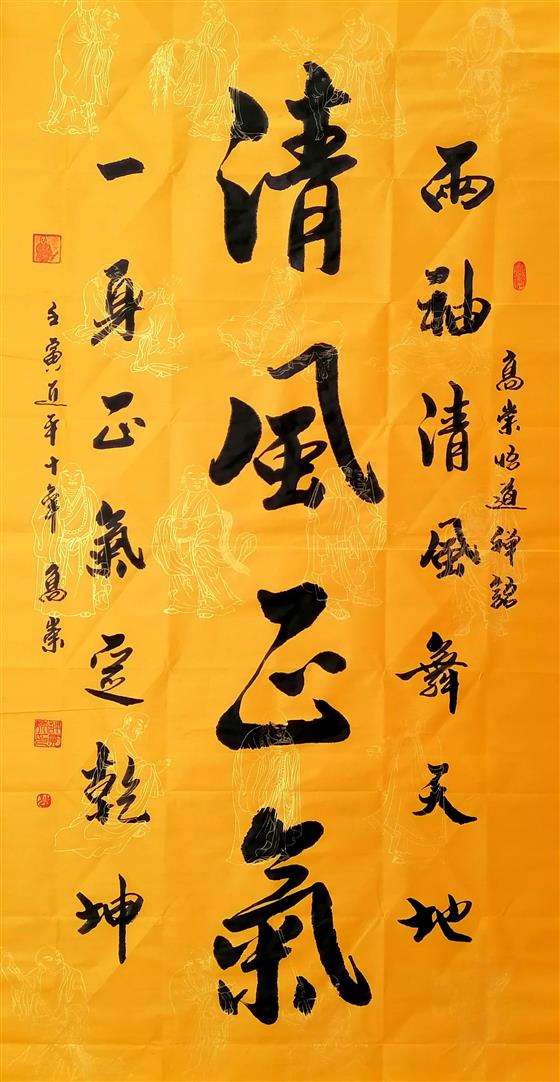 高崇悟道禅
兩袖清風舞天地
清風正氣
一身正氣定乾坤
壬寅近平十年高崇